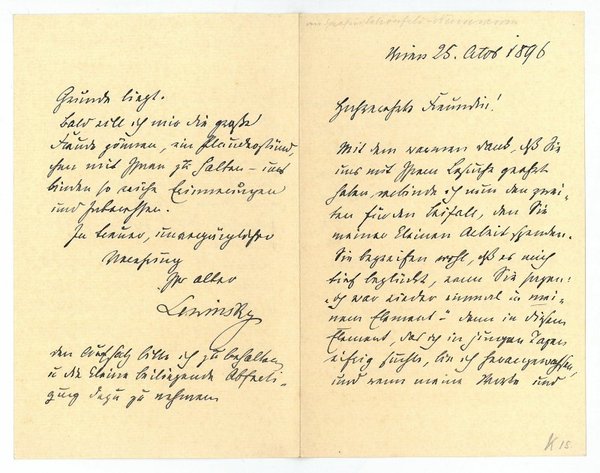 Wien 25. Octob 1896
Hochverehrte Freundin!
Mit dem warmen Dank, daß Sie
uns mit Ihrem Besuche geehrt
haben, verbinde ich nun den zwei-
ten für den Beifall, den Sie
meiner kleinen Arbeit spenden.
Sie begreifen wohl, daß es mich
tief beglückt, wenn Sie sagen:
ich war wieder einmal in mei-
nem Element u denn in diesem
Element, das ich in jungen Tagen
eifrig suchte, bin ich herangewachsen,
und wenn meine Worte und
Grunde liegt.
Bald will ich mir die große
Freude gönnen, ein Plauderstünd-
chen mit Ihnen zu halten – uns
binden so reiche Erinnerungen
und Interessen.
In treuer, unvergänglicher
Verehrung
Ihr alter
Lewinsky
den Aufsatz bitte ich zu behalten
u die kleine beiliegende
zu nehmen
K 15.